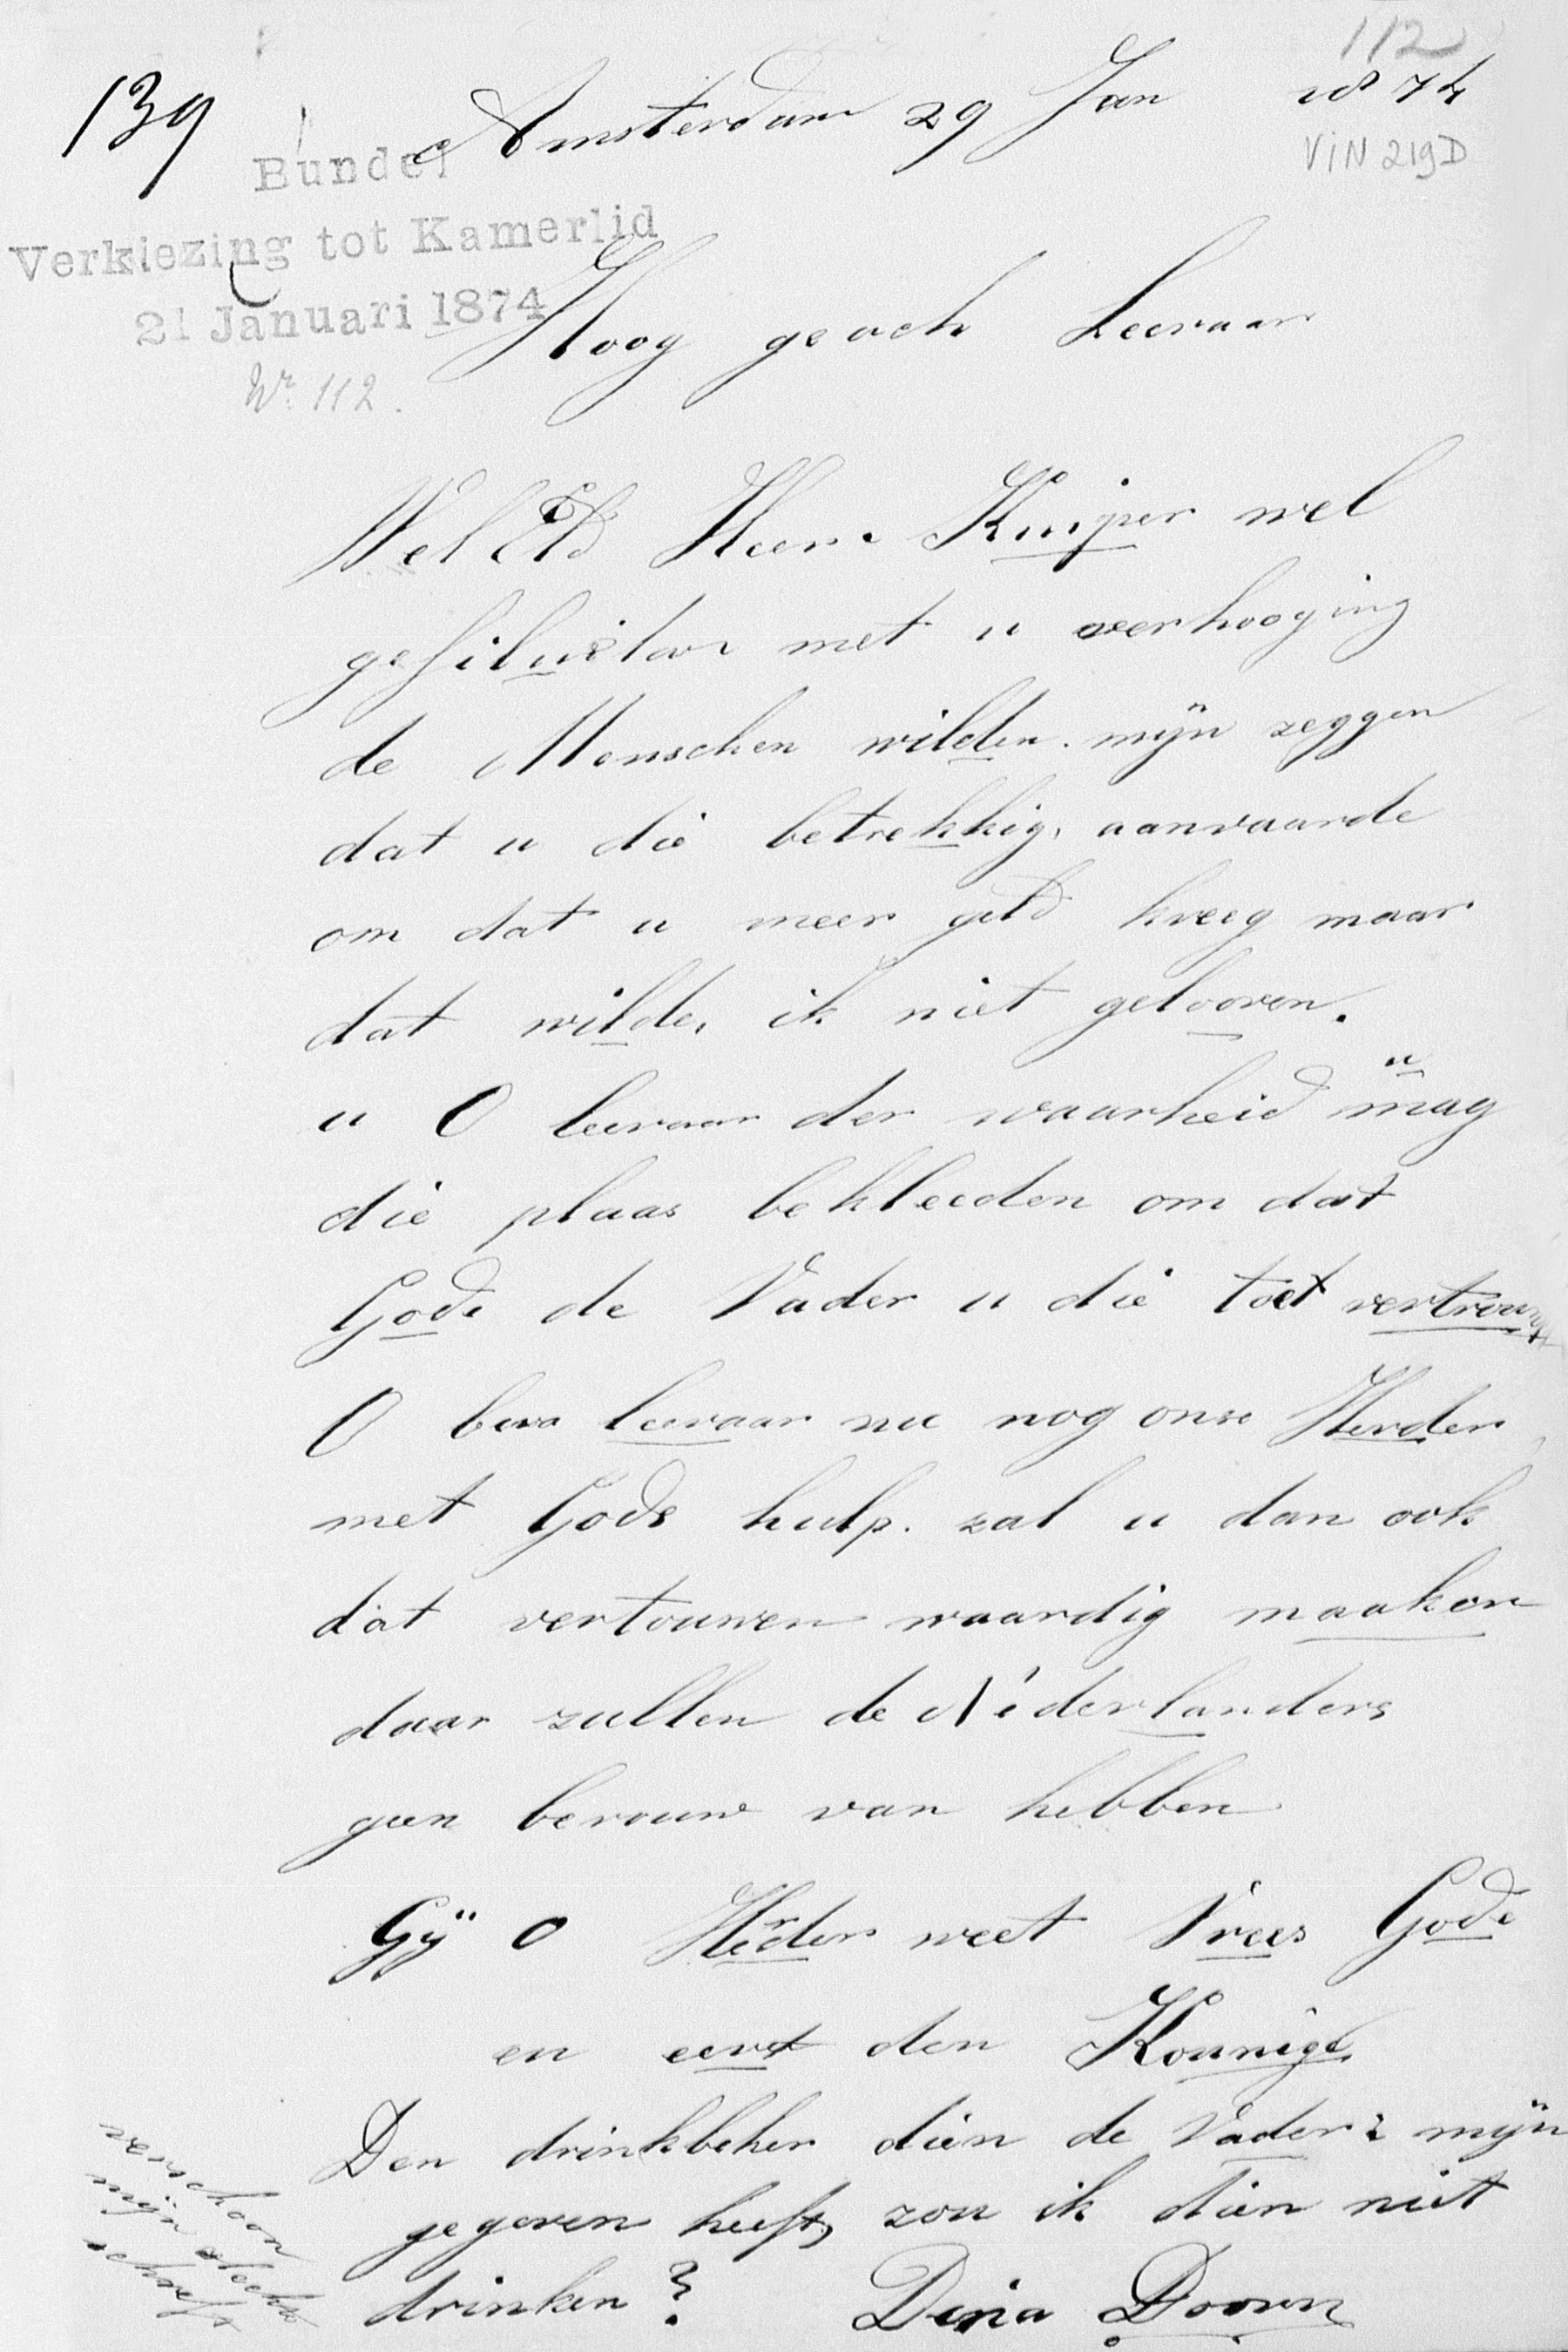 112
139
Amsterdam 29 Jan 1874
VIN 219D
Bundel
Verkiezing tot Kamerlid
21 Januari 1874
Nr. 112.
Hoog geach Leeraar
Wel Heer Kuijper wel
gefiluiter met u verhooging
de Menschen wilden mijn zeggen
dat u die betrekkig aanvaarde
om dat u meer geld kreeg maar
dat wilde, ik niet gelooven.
u O leeraar der waarheid u mag
die plaas bekleeden om dat
Gode de Vader u die toet vertrouwt
O leeraar nu nog onse Herder
met Gods hulp. zal u dan ook
dat vertouwen waardig maaken
daar zullen de Nederlanders
geen berouw van hebben
Gÿ O Herder weet Vrees Gode
en eert den Konnige
Den drinkbeker dien de Vader mijn
gegeven heeft, zou ik dien niet
drinken? Dina Doorn
verschoon
mijn slechte
schreft